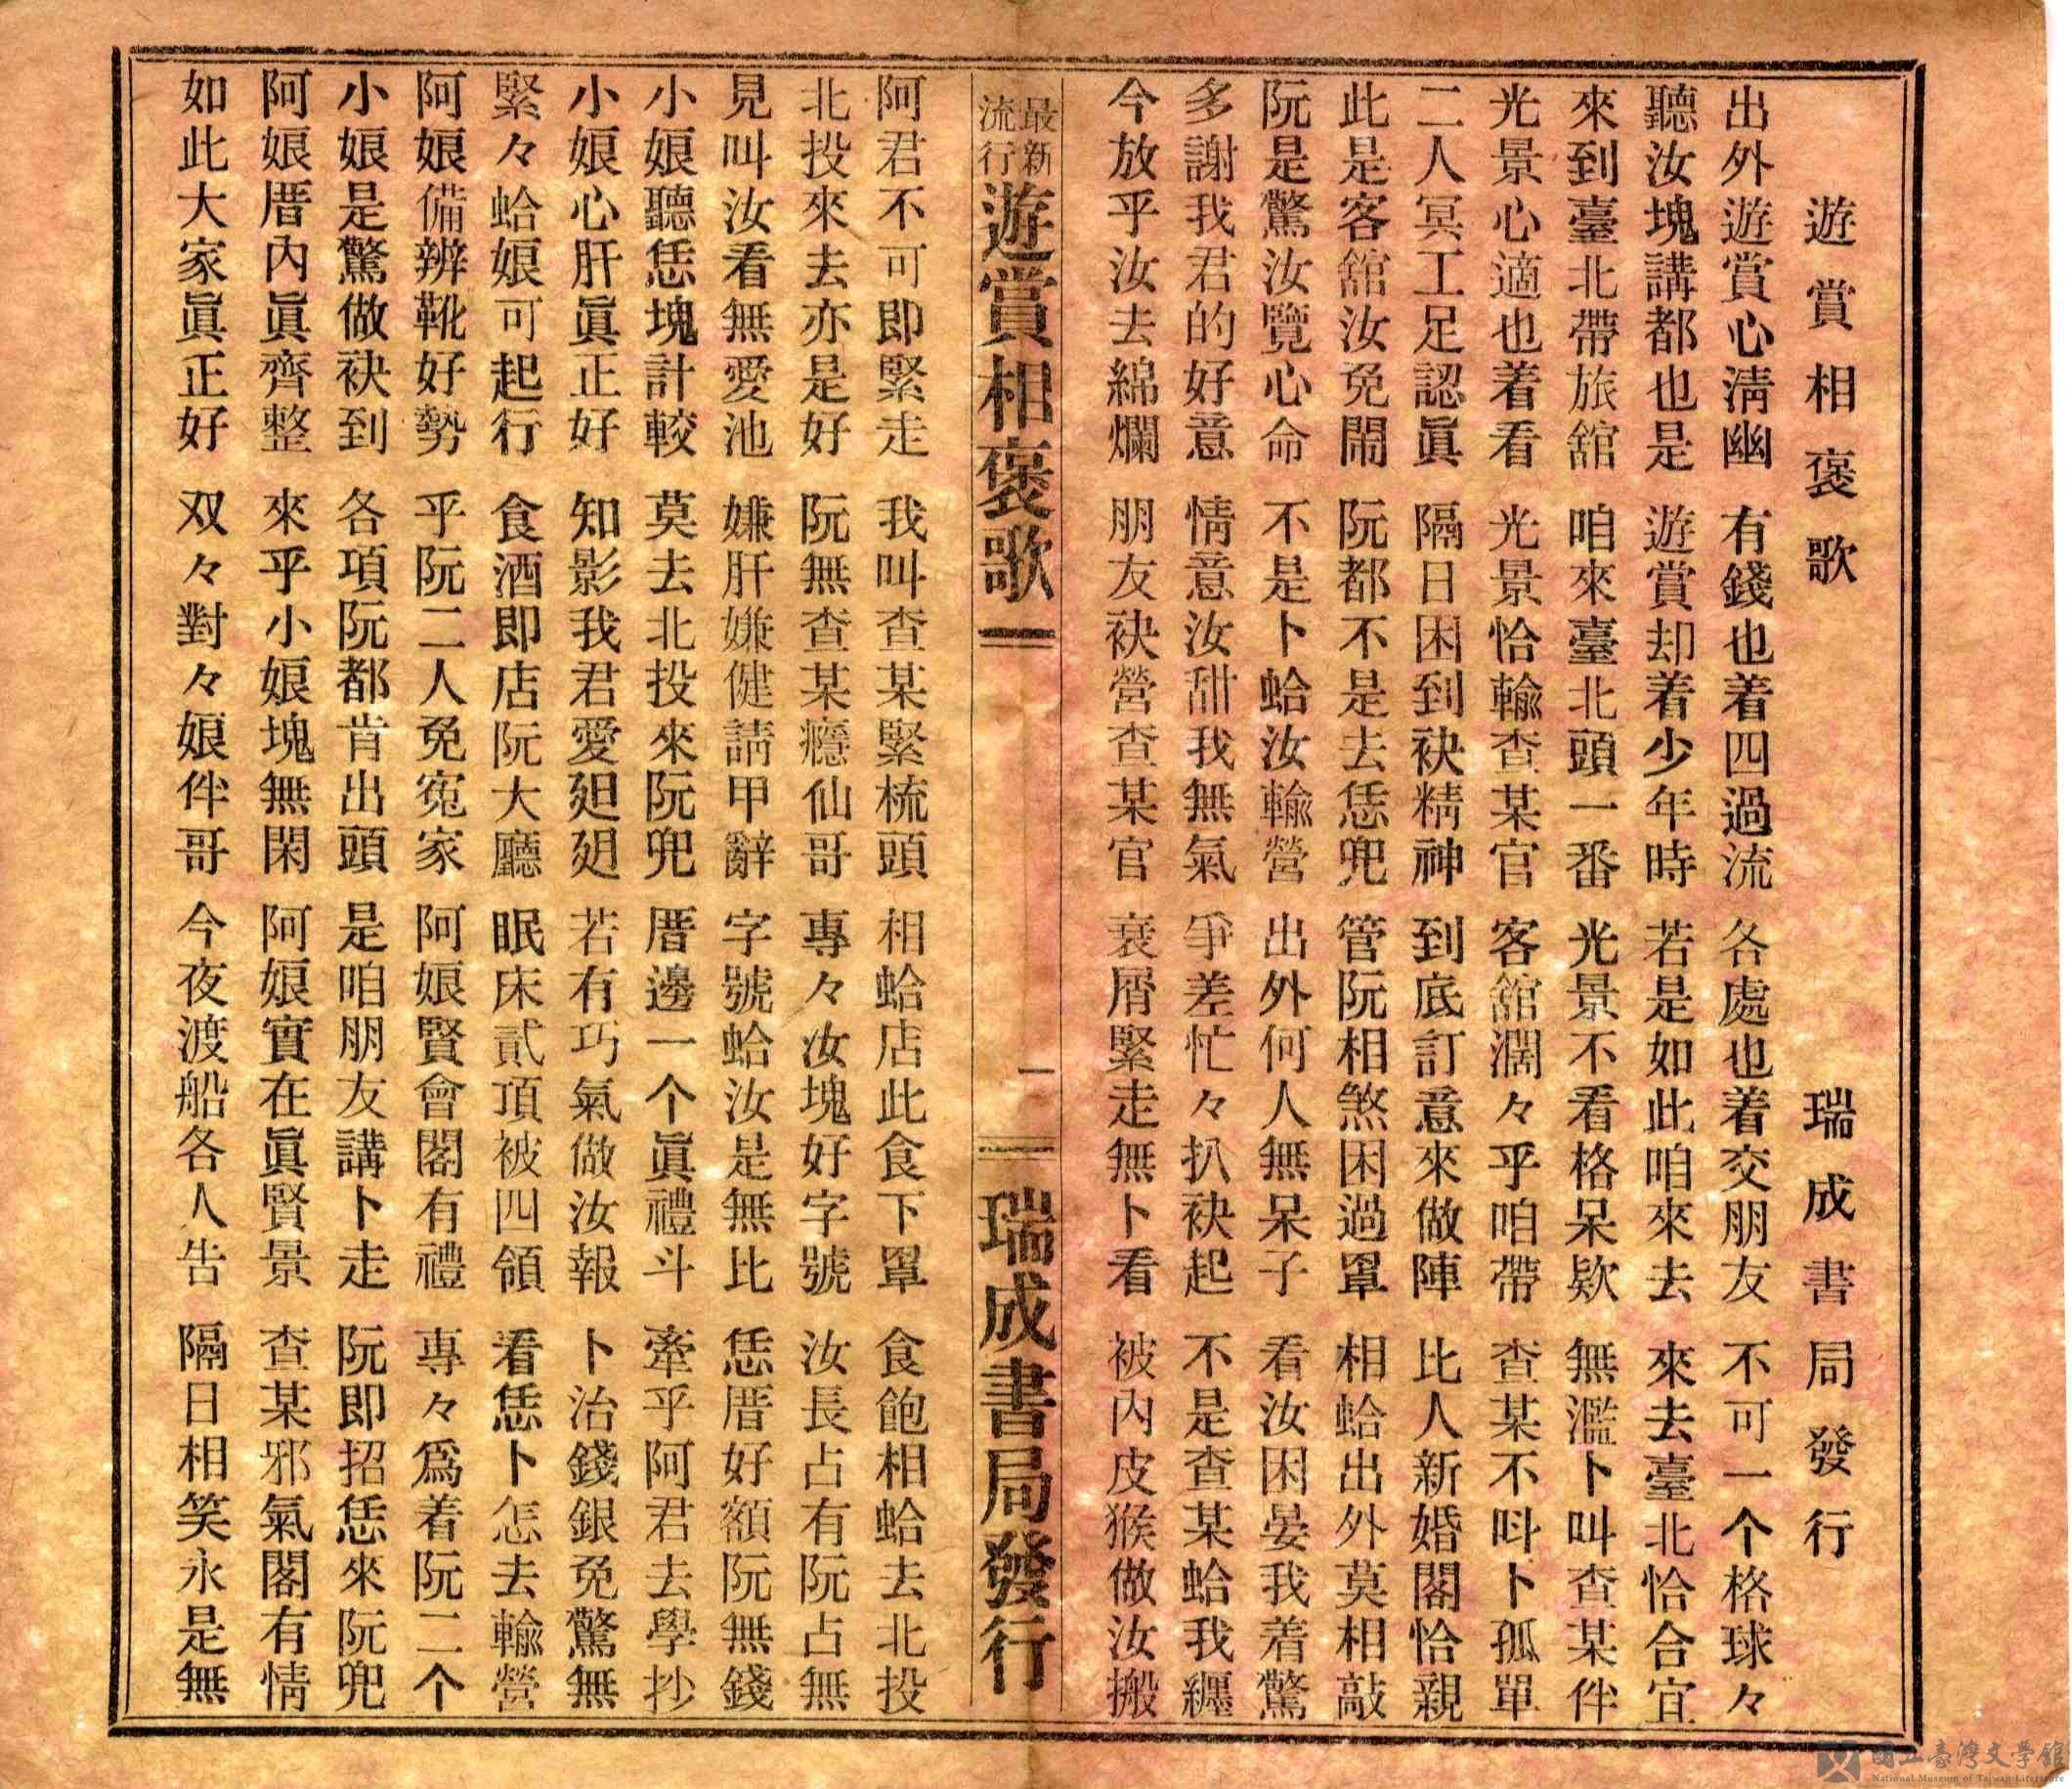 遊賞相褒歌　瑞成書局發行
出外遊賞心淸幽　有錢也着四過流　各處也着交朋友　不可一个格球々
聽汝塊講都也是　遊賞却着少年時　若是如此咱來去　來去臺北恰合宜
來到臺北帶旅舘　咱來臺北頭一番　光景不看格呆欵　無濫卜叫查某伴
光景心適也着看　光景恰輸查某官　客舘濶々乎咱帶　查某不呌卜孤單
二人冥工足認眞　隔日困到袂精神　到底訂意來做陣　比人新婚閣恰親
此是客舘汝免鬧　阮都不是去恁兜　管阮相煞困過罩　相蛤出外莫相敲
阮是驚汝覽心命　不是卜蛤汝輸營　出外何人無呆子　看汝困晏我着驚
多謝我君的好意　情意汝甜我無氣　爭差忙々扒袂起　不是查某蛤我纏
今放乎汝去綿爛　朋友袂營查某官　衰屑緊走無卜看　被內皮猴做汝搬
最新流行　遊賞相褒歌　一　瑞成書局發行
阿君不可即緊走　我叫查某緊梳頭　相蛤店此食下罩　食飽相蛤去北投
北投來去亦是好　阮無查某癮仙哥　專々汝塊好字號　汝長占有阮占無
見叫汝看無愛池　嫌肝嫌健請甲辭　字號蛤汝是無比　恁厝好額阮無錢
小娘聽恁塊計較　莫去北投來阮兜　厝邊一个眞禮斗　牽乎阿君去學抄
小娘心肝眞正好　知影我君愛廻廻　若有巧氣做汝報　卜治錢銀免驚無
緊々蛤娘可起行　食酒即店阮大廳　眠床貳頂被四領　看恁卜怎去輸營
阿娘備辨靴好勢　乎阮二人免寃家　阿娘賢會閣有禮　專々爲着阮二个
小娘是驚做袂到　各項阮都肯出頭　是咱朋友講卜走　阮即招恁來阮兜
阿娘厝內眞齊整　來乎小娘塊無閑　阿娘實在眞賢景　查某邪氣閣有情
如此大家眞正好　双々對々娘伴哥　今夜渡船各人告　隔日相笑永是無
國立臺灣文學館
National Museum of Taiwan Literature